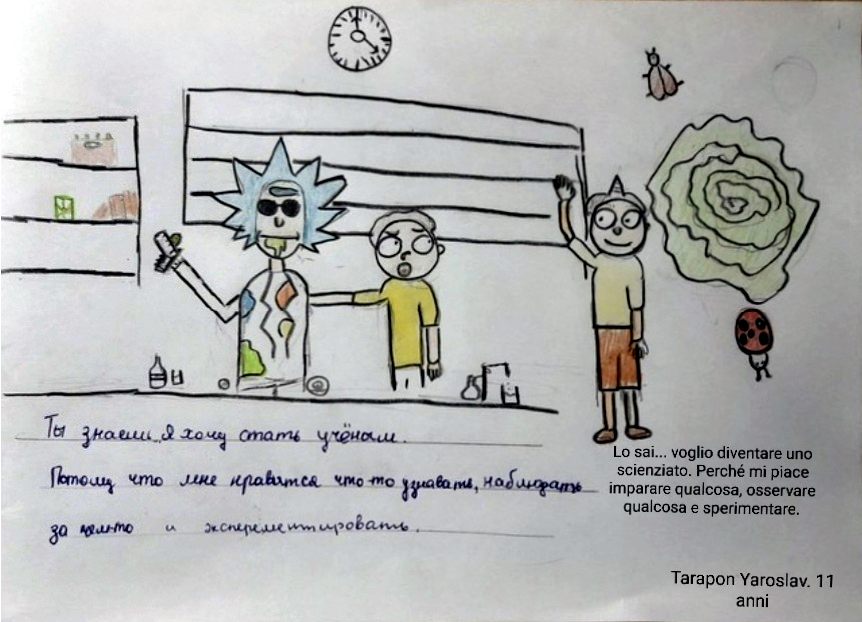 Ты знаеш, я хочу стать учёным.
Потому что мне нравится что-то узнавать, наблюдать
за чем-то и эксперементировать.
Lo sai... voglio diventare uno
scienziato. Perché mi piace
imparare qualcosa, osservare
qualcosa e sperimentare.
Tarapon Yaroslav. 11
anni